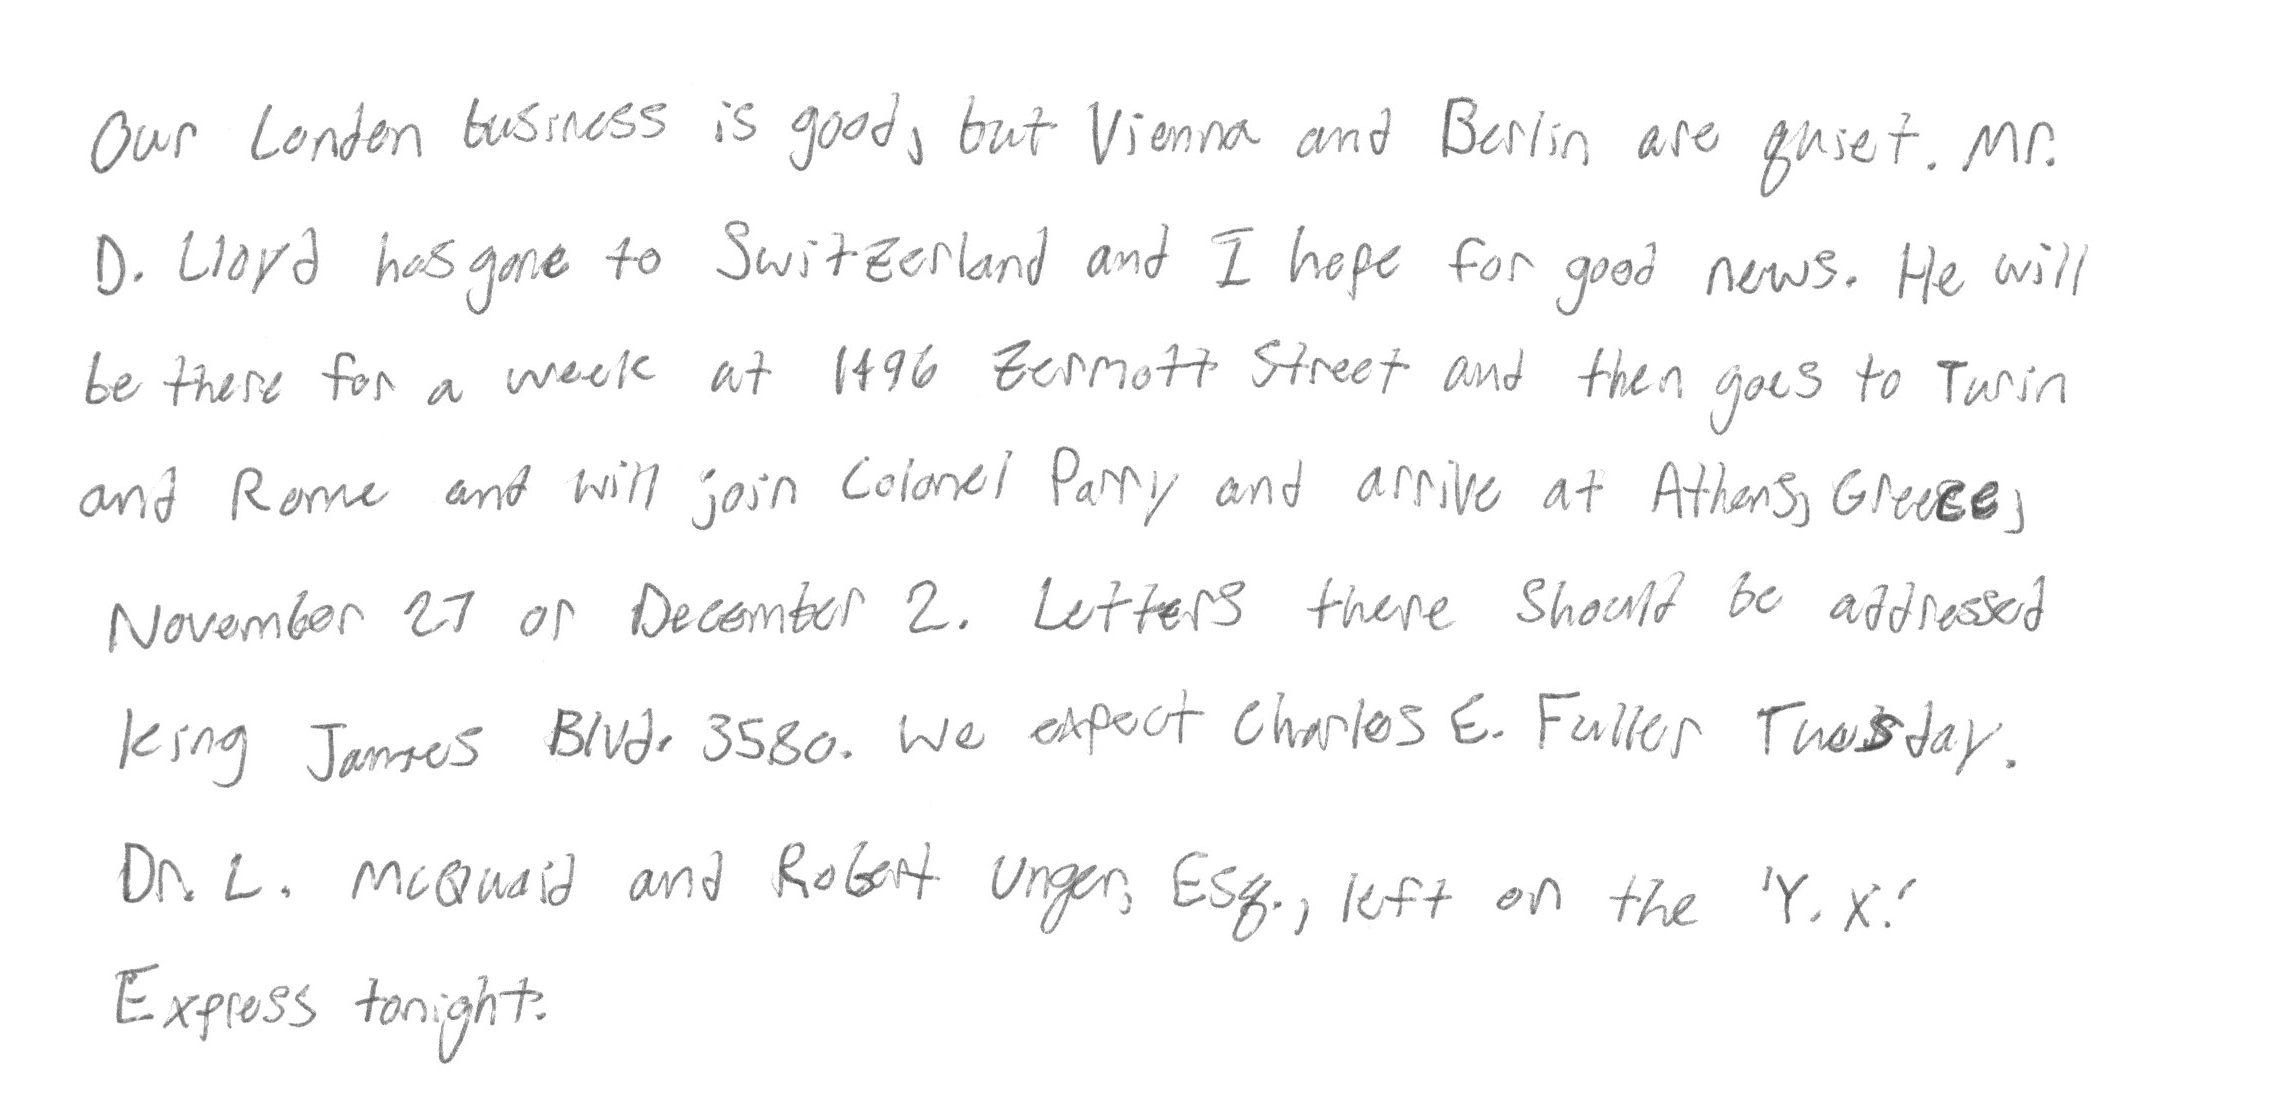 Our London business is good, but Vienna and Berlin are quiet. Mr.
D. Lloyd has gone to Switzerland and I hope for good news. He will
be there for a week at 1496 Zermott Street and then goes to Turin
and Rome and will join Colonel Parry and arrive at Athens, Greece,
November 27 or December 2. Letters there should be addressed
King James Blvd. 3580. We expect Charles E. Fuller Tuesday.
Dr. L. McQuaid and Robert Unger, Esq., left on the 'Y. X.'
Express tonight.